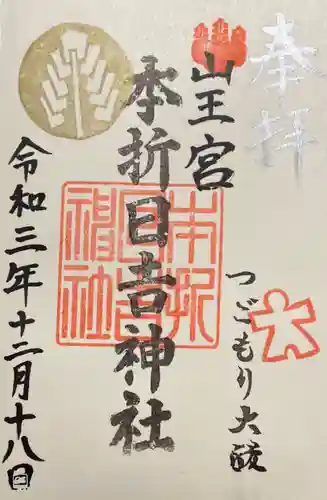 奉拝
山王宮
本折日吉神社
本折日吉神社
つごもり大祓
令和三年十二月十八日